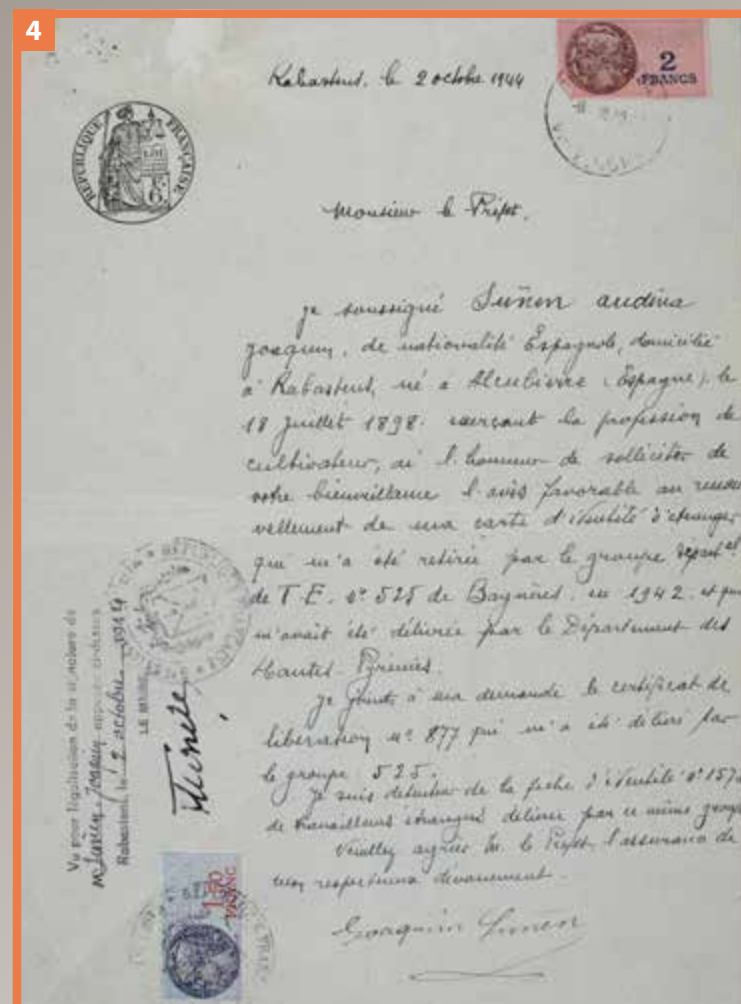 4
Rabastens, le 2 octobre 1944
2
FRANCS
REPUBLIQUE FRANÇAISE
LOI
6F
Monsieur le Préfet,
je soussigné Suñen audina
Joaquin, de nationalité Espagnole, domicilié
à Rabastens, né à Alcubierre (Espagne), le
18 juillet 1898. exerçant la profession de
cultivateur, ai l'honneur de solliciter de
votre bienveillance l'avis favorable au renou
vellement de ma carte d'identité d'étranger
qui m'a été retirée par le groupe départ.al
de T.E. n° 525 de Bagnères. en 1942. et qui
m'avait été délivrée par le Département des
Hautes-Pyrénées.
je joints à ma demande le certificat de
libération n° 877 qui m'a été délivré par
le groupe 525.
Je suis detenteur de la fiche d'identité n° 157
de travailleurs étrangers délivrée par ce même groupe
Veuillez agréer M. le Préfet l'assurance de
mon respectueux dévouement.
Joaquin Suñen
Vu pour légalisation de la signature de
M Suñen Joaquin apposée ci-dessus
Rabastens, le 2 octobre 1944
LE MAIRE
REPUBLIQUE FRANÇAISE
1F50